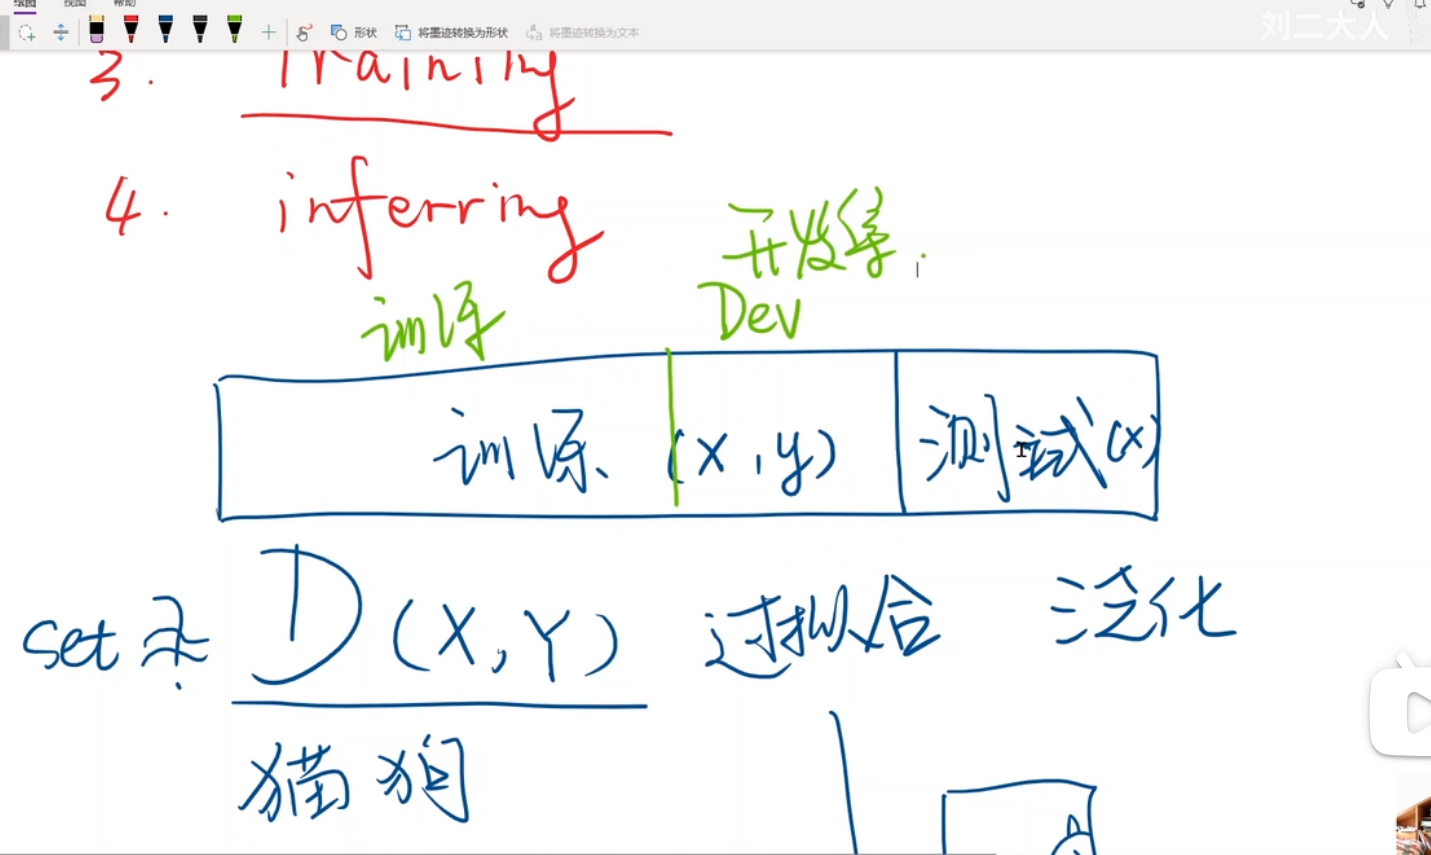 绘图 视图 帮助
形状 将墨迹转换为形状 将墨迹转换为文本
刘二大人
3. Training
4. inferring
开发集.
训练 Dev
训练 (x,y) 测试(x)
Set D(X,Y) 过拟合 泛化
猫 狗